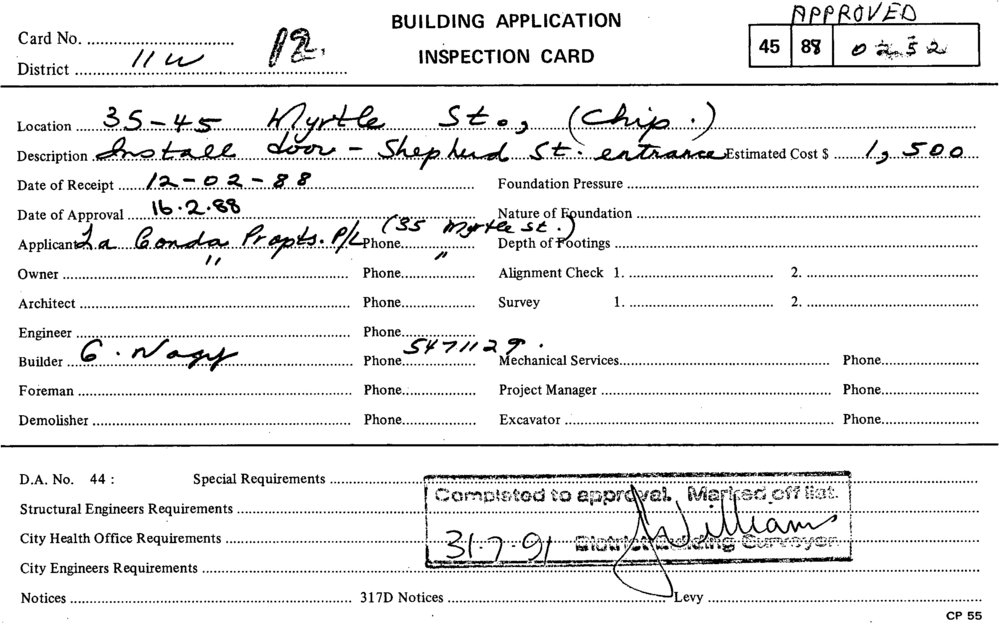 BUILDING APPLICATION
APPROVED
Card No.
12.
INSPECTION CARD
45 88 0252
District 11W
Location 35-45 Myrtle St., (Chip.)
Description Install door - Shepherd St. entrance Estimated Cost $ 1,500
Date of Receipt 12-02-88 Foundation Pressure
Date of Approval 16.2.88 Nature of Foundation
Applicant La Conda Propts. P/L Phone (35 Myrtle St.) Depth of Footings
Owner " Phone " Alignment Check 1. 2.
Architect Phone Survey 1. 2.
Engineer Phone
Builder G. Nagy Phone 5471129. Mechanical Services Phone
Foreman Phone Project Manager Phone
Demolisher Phone Excavator Phone
D.A. No. 44 : Special Requirements
Completed to approval. Marked off list.
Structural Engineers Requirements
JWilliams
City Health Office Requirements
31.7.91 District Building Surveyor
City Engineers Requirements
Notices 317D Notices Levy
CP 55